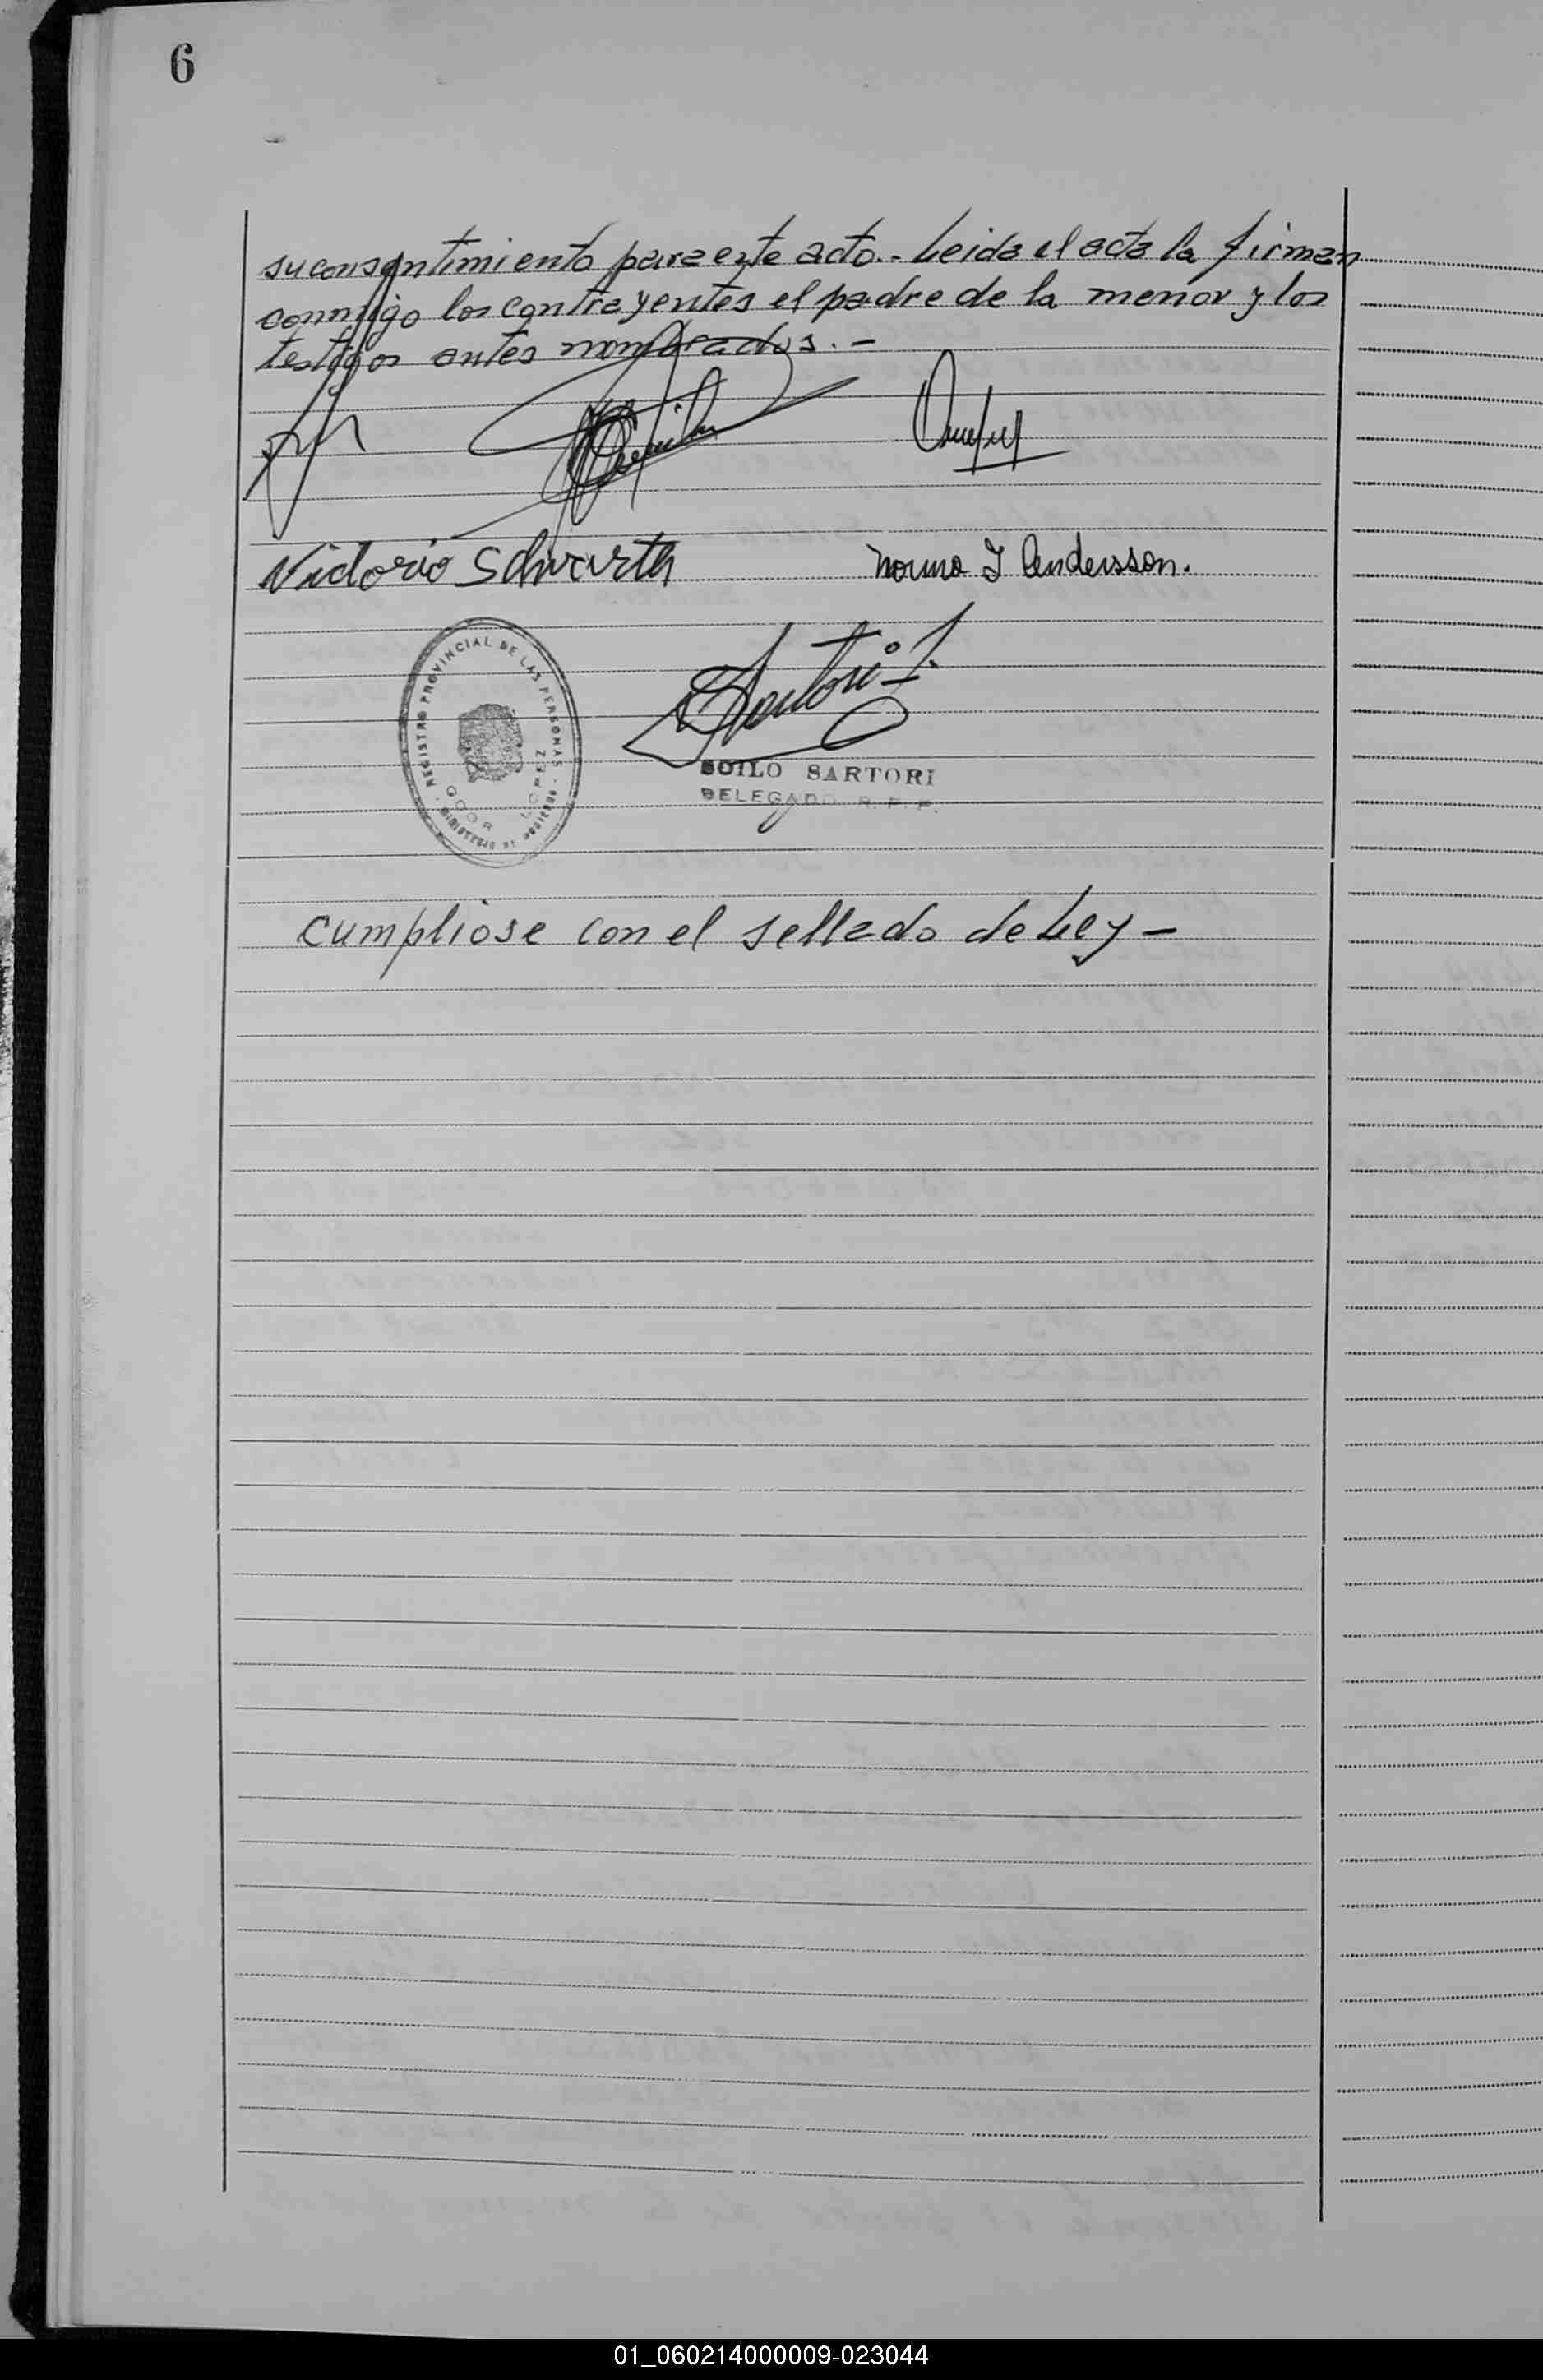 6
su consentimiento para este acto.- Leida el acta la firman
conmigo los contrayentes el padre de la menor y los
testigos antes nombrados.-
Victorio Schvartz
Norma I Andersson.
REGISTRO PROVINCIAL DE LAS PERSONAS
Sartori Z.
SOILO SARTORI
DELEGADO R. P. P.
Cumpliose con el sellado de Ley-
01_060214000009-023044